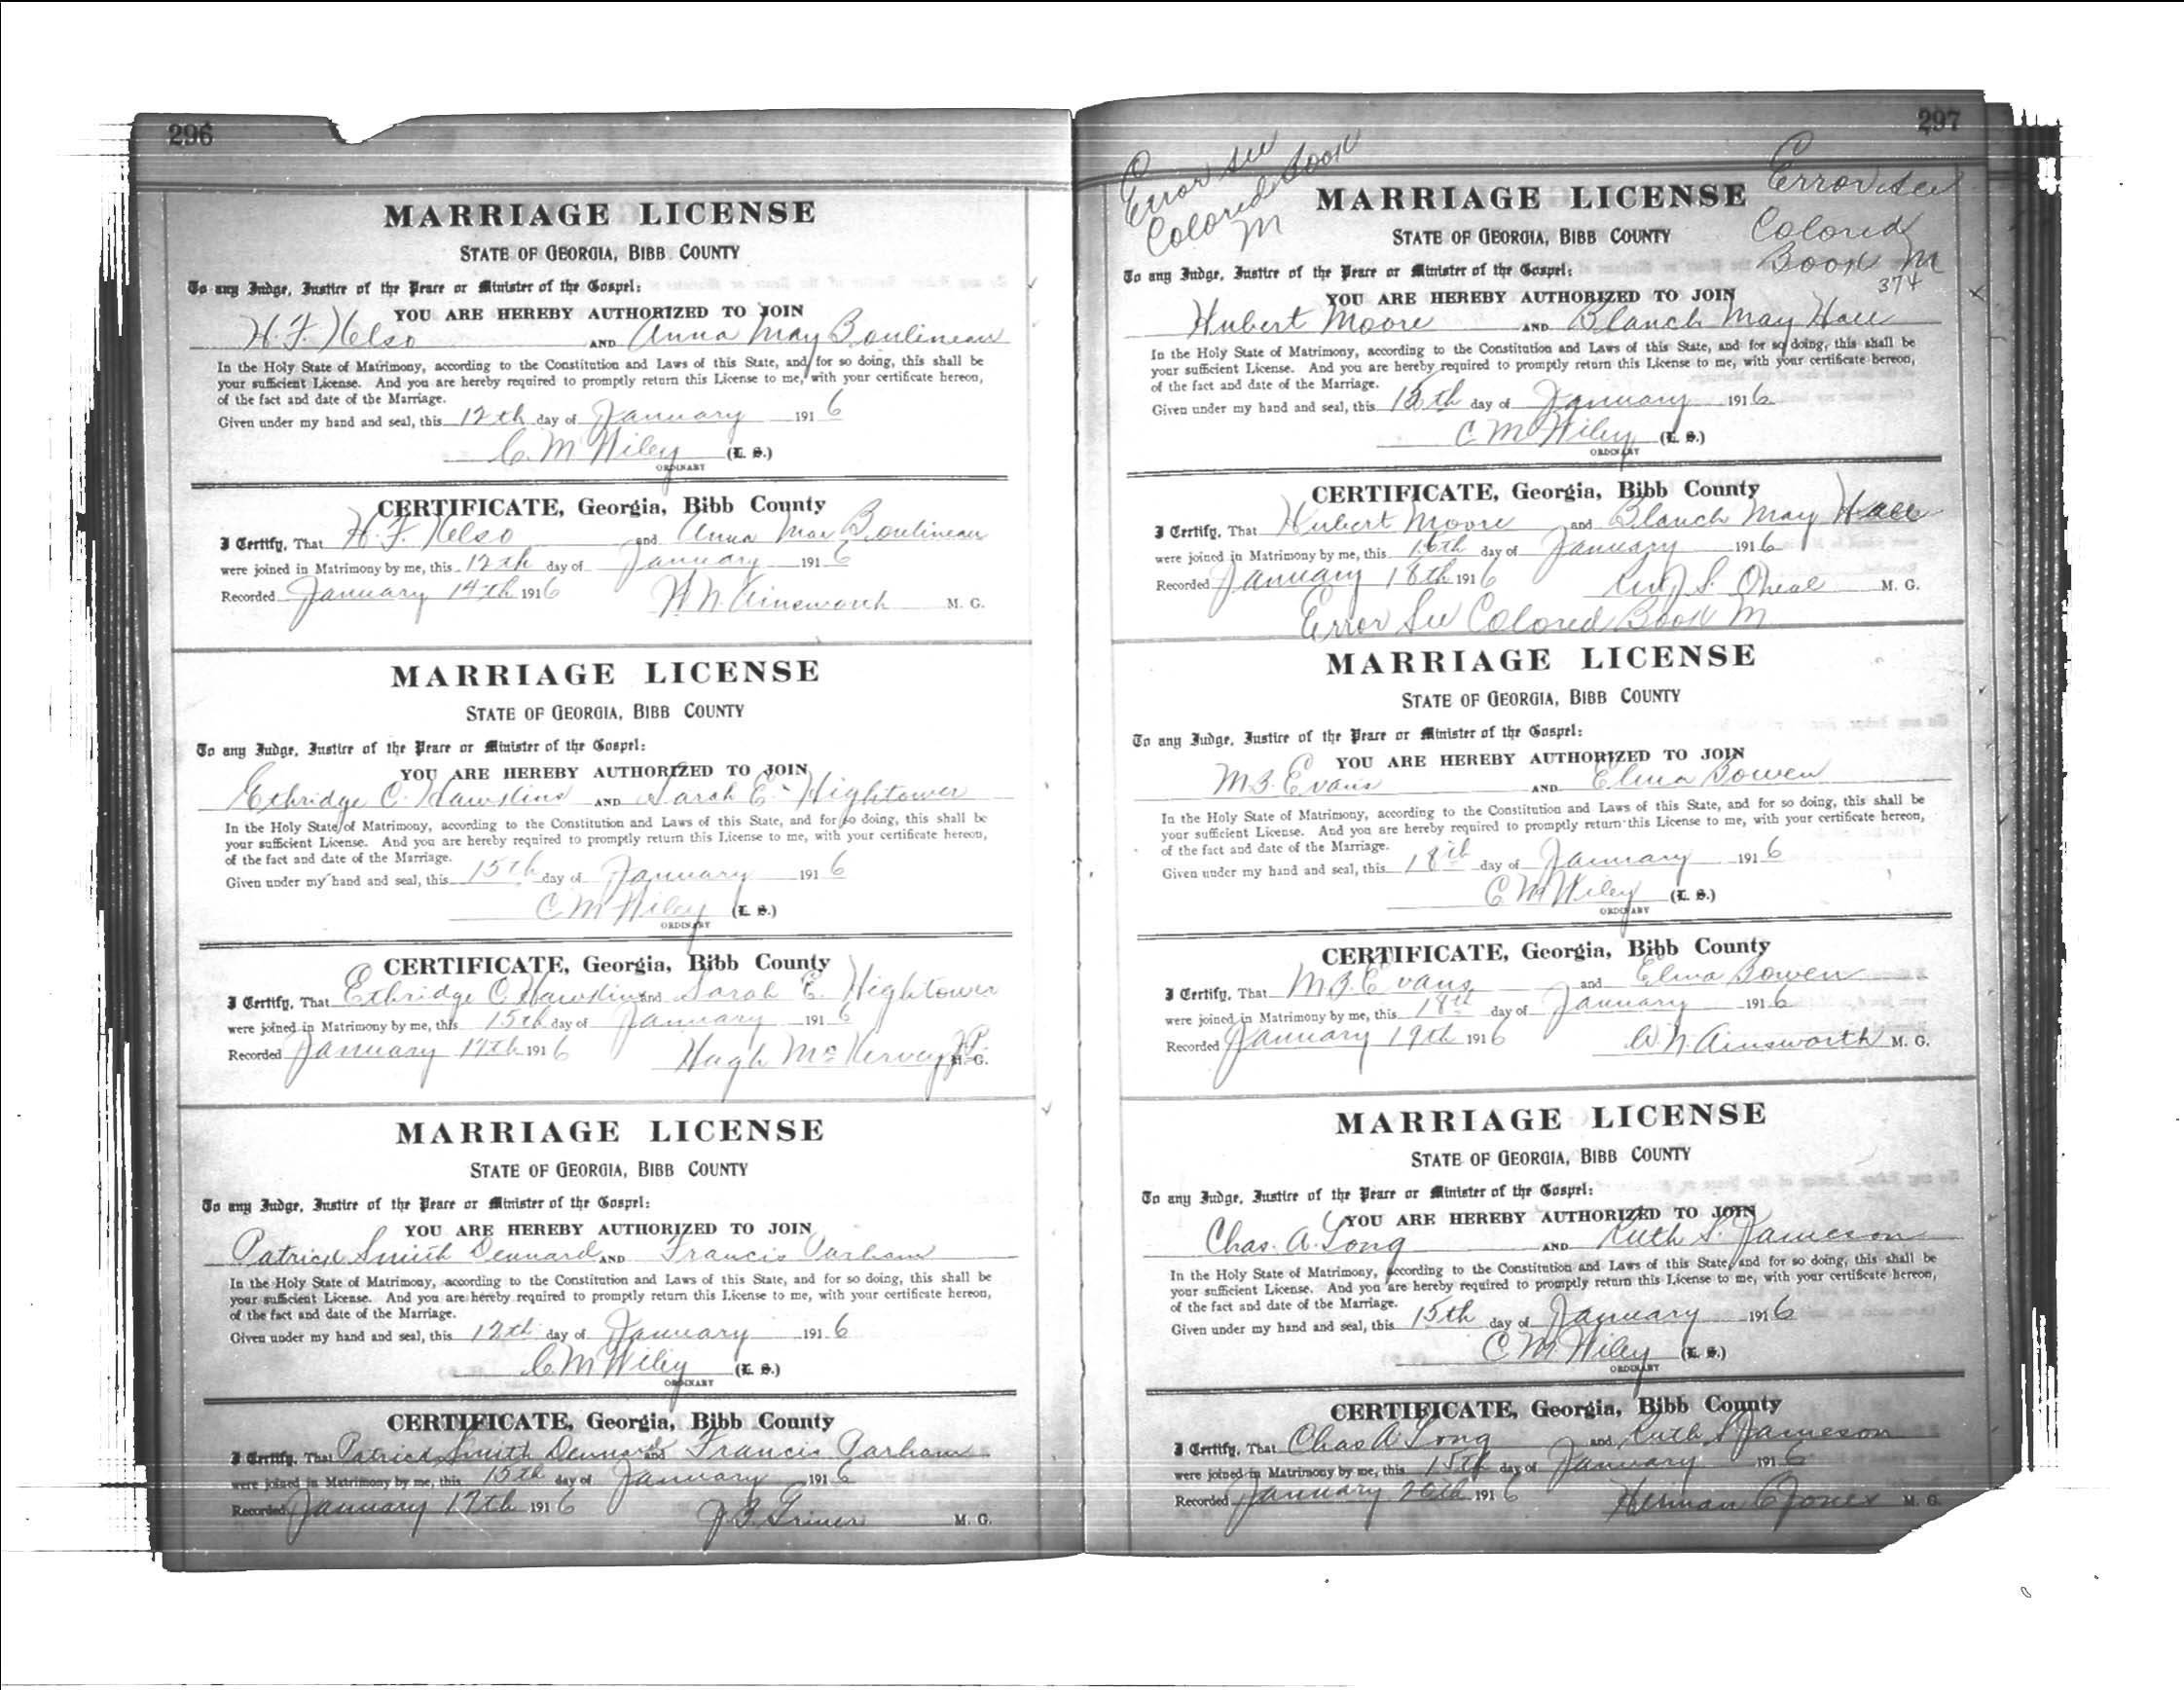 296
MARRIAGE LICENSE
STATE OF GEORGIA, BIBB COUNTY
To any Judge, Justice of the Peace or Minister of the Gospel:
YOU ARE HEREBY AUTHORIZED TO JOIN
H. F. Kelso AND Anna May Boulineau
In the Holy State of Matrimony, according to the Constitution and Laws of this State, and for so doing, this shall be
your sufficient License. And you are hereby required to promptly return this License to me, with your certificate hereon,
of the fact and date of the Marriage.
Given under my hand and seal, this 12th day of January 1916
C. M Wiley (L. S.)
ORDINARY
CERTIFICATE, Georgia, Bibb County
I Certify, That H. F. Kelso and Anna Mae Boulineau
were joined in Matrimony by me, this 12th day of January 1916
Recorded January 14th 1916 W. N. Ainsworth M. G.
MARRIAGE LICENSE
STATE OF GEORGIA, BIBB COUNTY
To any Judge, Justice of the Peace or Minister of the Gospel:
YOU ARE HEREBY AUTHORIZED TO JOIN
Ethridge C. Hawkins AND Sarah E. Hightower
In the Holy State of Matrimony, according to the Constitution and Laws of this State, and for so doing, this shall be
your sufficient License. And you are hereby required to promptly return this License to me, with your certificate hereon,
of the fact and date of the Marriage.
Given under my hand and seal, this 15th day of January 1916
C M Wiley (L. S.)
ORDINARY
CERTIFICATE, Georgia, Bibb County
I Certify, That Ethridge C. Hawkins and Sarah E. Hightower
were joined in Matrimony by me, this 15th day of January 1916
Recorded January 17th 1916 Hugh McKervey J.P. M. G.
MARRIAGE LICENSE
STATE OF GEORGIA, BIBB COUNTY
To any Judge, Justice of the Peace or Minister of the Gospel:
YOU ARE HEREBY AUTHORIZED TO JOIN
Patrick Smith Dennard AND Francis Parham
In the Holy State of Matrimony, according to the Constitution and Laws of this State, and for so doing, this shall be
your sufficient License. And you are hereby required to promptly return this License to me, with your certificate hereon,
of the fact and date of the Marriage.
Given under my hand and seal, this 12th day of January 1916
C. M Wiley (L. S.)
ORDINARY
CERTIFICATE, Georgia, Bibb County
I Certify, That Patrick Smith Dennard and Francis Parham
were joined in Matrimony by me, this 15th day of January 1916
Recorded January 17th 1916 J. B. Griner M. G.
297
Error See
Colored Book
M
Error See
Colored
Book M
374
MARRIAGE LICENSE
STATE OF GEORGIA, BIBB COUNTY
To any Judge, Justice of the Peace or Minister of the Gospel:
YOU ARE HEREBY AUTHORIZED TO JOIN
Hubert Moore AND Blanch May Hall
In the Holy State of Matrimony, according to the Constitution and Laws of this State, and for so doing, this shall be
your sufficient License. And you are hereby required to promptly return this License to me, with your certificate hereon,
of the fact and date of the Marriage.
Given under my hand and seal, this 15th day of January 1916
C M Wiley (L. S.)
ORDINARY
CERTIFICATE, Georgia, Bibb County
I Certify, That Hubert Moore and Blanch May Hall
were joined in Matrimony by me, this 16th day of January 1916
Recorded January 18th 1916 S. Oneal M. G.
Error See Colored Book M
MARRIAGE LICENSE
STATE OF GEORGIA, BIBB COUNTY
To any Judge, Justice of the Peace or Minister of the Gospel:
YOU ARE HEREBY AUTHORIZED TO JOIN
M. B. Evans AND Elma Bowen
In the Holy State of Matrimony, according to the Constitution and Laws of this State, and for so doing, this shall be
your sufficient License. And you are hereby required to promptly return this License to me, with your certificate hereon,
of the fact and date of the Marriage.
Given under my hand and seal, this 18th day of January 1916
C M Wiley (L. S.)
ORDINARY
CERTIFICATE, Georgia, Bibb County
I Certify, That M. B. Evans and Elma Bowen
were joined in Matrimony by me, this 18th day of January 1916
Recorded January 19th 1916 W N Ainsworth M. G.
MARRIAGE LICENSE
STATE OF GEORGIA, BIBB COUNTY
To any Judge, Justice of the Peace or Minister of the Gospel:
YOU ARE HEREBY AUTHORIZED TO JOIN
Chas. A. Long AND Ruth S. Jameson
In the Holy State of Matrimony, according to the Constitution and Laws of this State, and for so doing, this shall be
your sufficient License. And you are hereby required to promptly return this License to me, with your certificate hereon,
of the fact and date of the Marriage.
Given under my hand and seal, this 15th day of January 1916
C M Wiley (L. S.)
ORDINARY
CERTIFICATE, Georgia, Bibb County
I Certify, That Chas A Long and Ruth S Jameson
were joined in Matrimony by me, this 15th day of January 1916
Recorded January 20th 1916 Herman C Jones M. G.